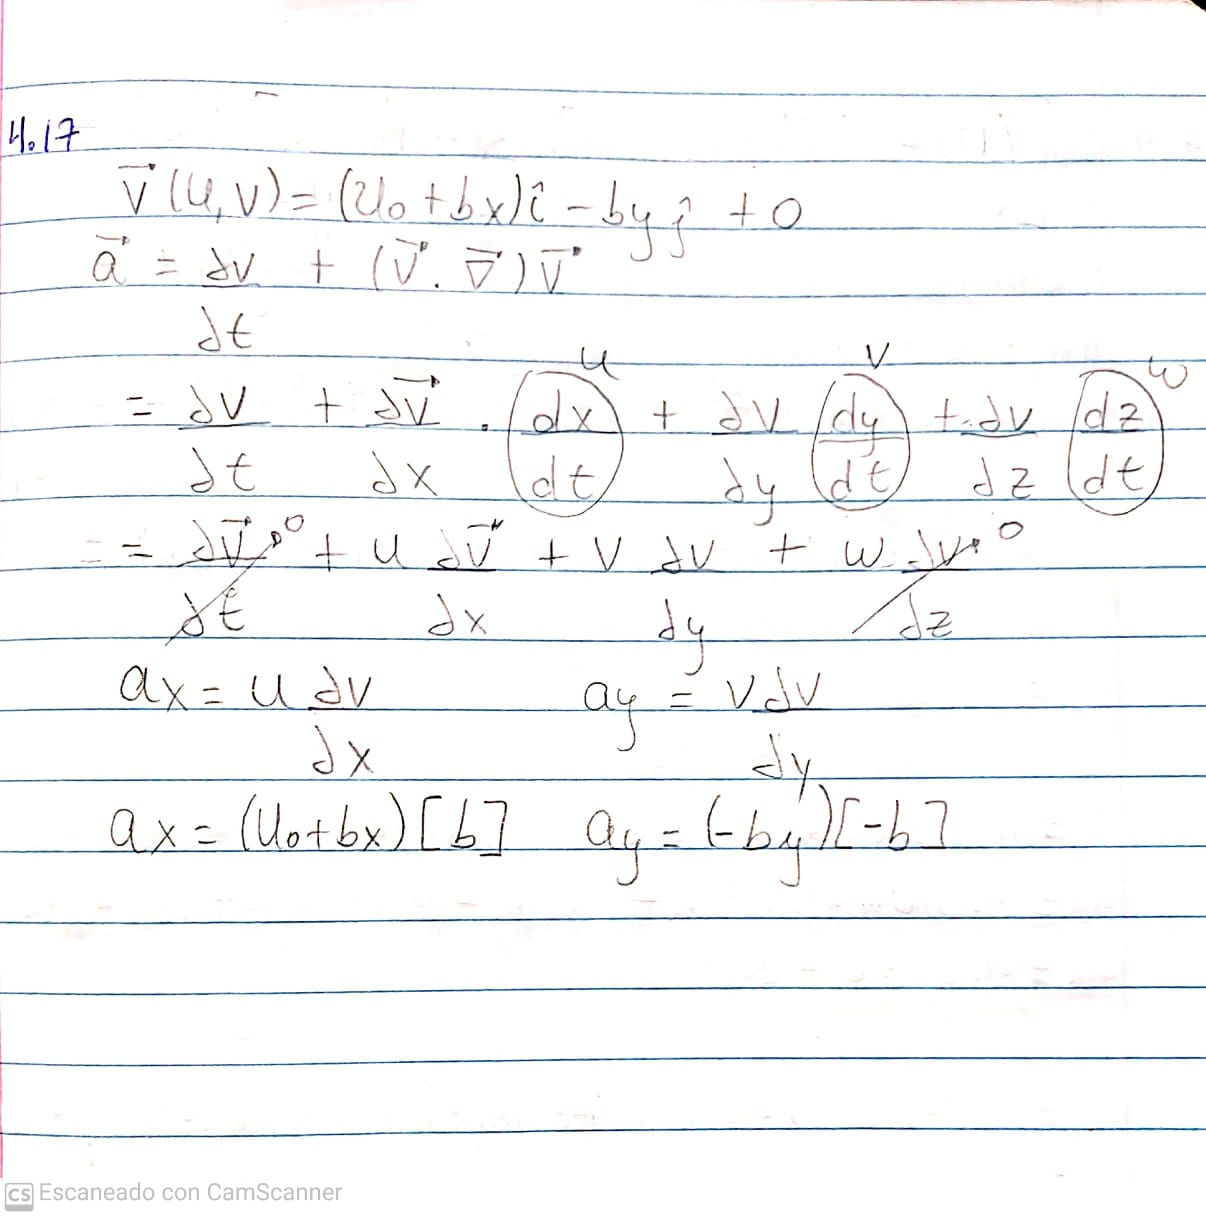 4.17
V⃗ (u,v) = (U₀ + bx) î - by ĵ + 0
a⃗ = ∂v/∂t + (V⃗ . ∇⃗) V⃗
= ∂v/∂t + ∂V⃗/∂x . (dx/dt) u + ∂v/∂y (dy/dt) v + ∂v/∂z (dz/dt) w
= ∂V⃗/∂t 0 + u ∂V⃗/∂x + v ∂v/∂y + w ∂v/∂z 0
ax = u ∂v/∂x ay = v ∂v/∂y
ax = (U₀+bx)[b] ay = (-by)[-b]
CS Escaneado con CamScanner